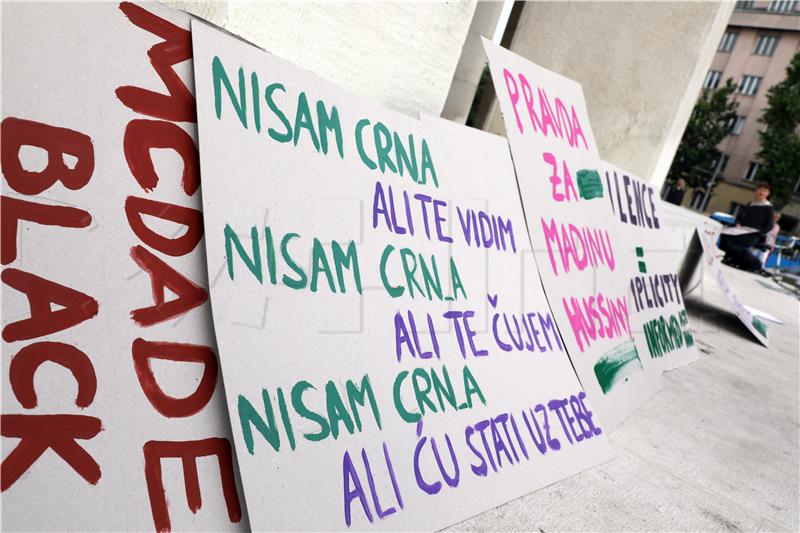 BLACK
MCDADE
NISAM CRN_A
ALI TE VIDIM
NISAM CRN_A
ALI TE ČUJEM
NISAM CRN_A
ALI ĆU STATI UZ TEBE
PRAVDA
ZA
MADINU
HUSSINY
ILENCE
=
PLICITY